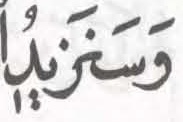 وَسَنَزِيدُ